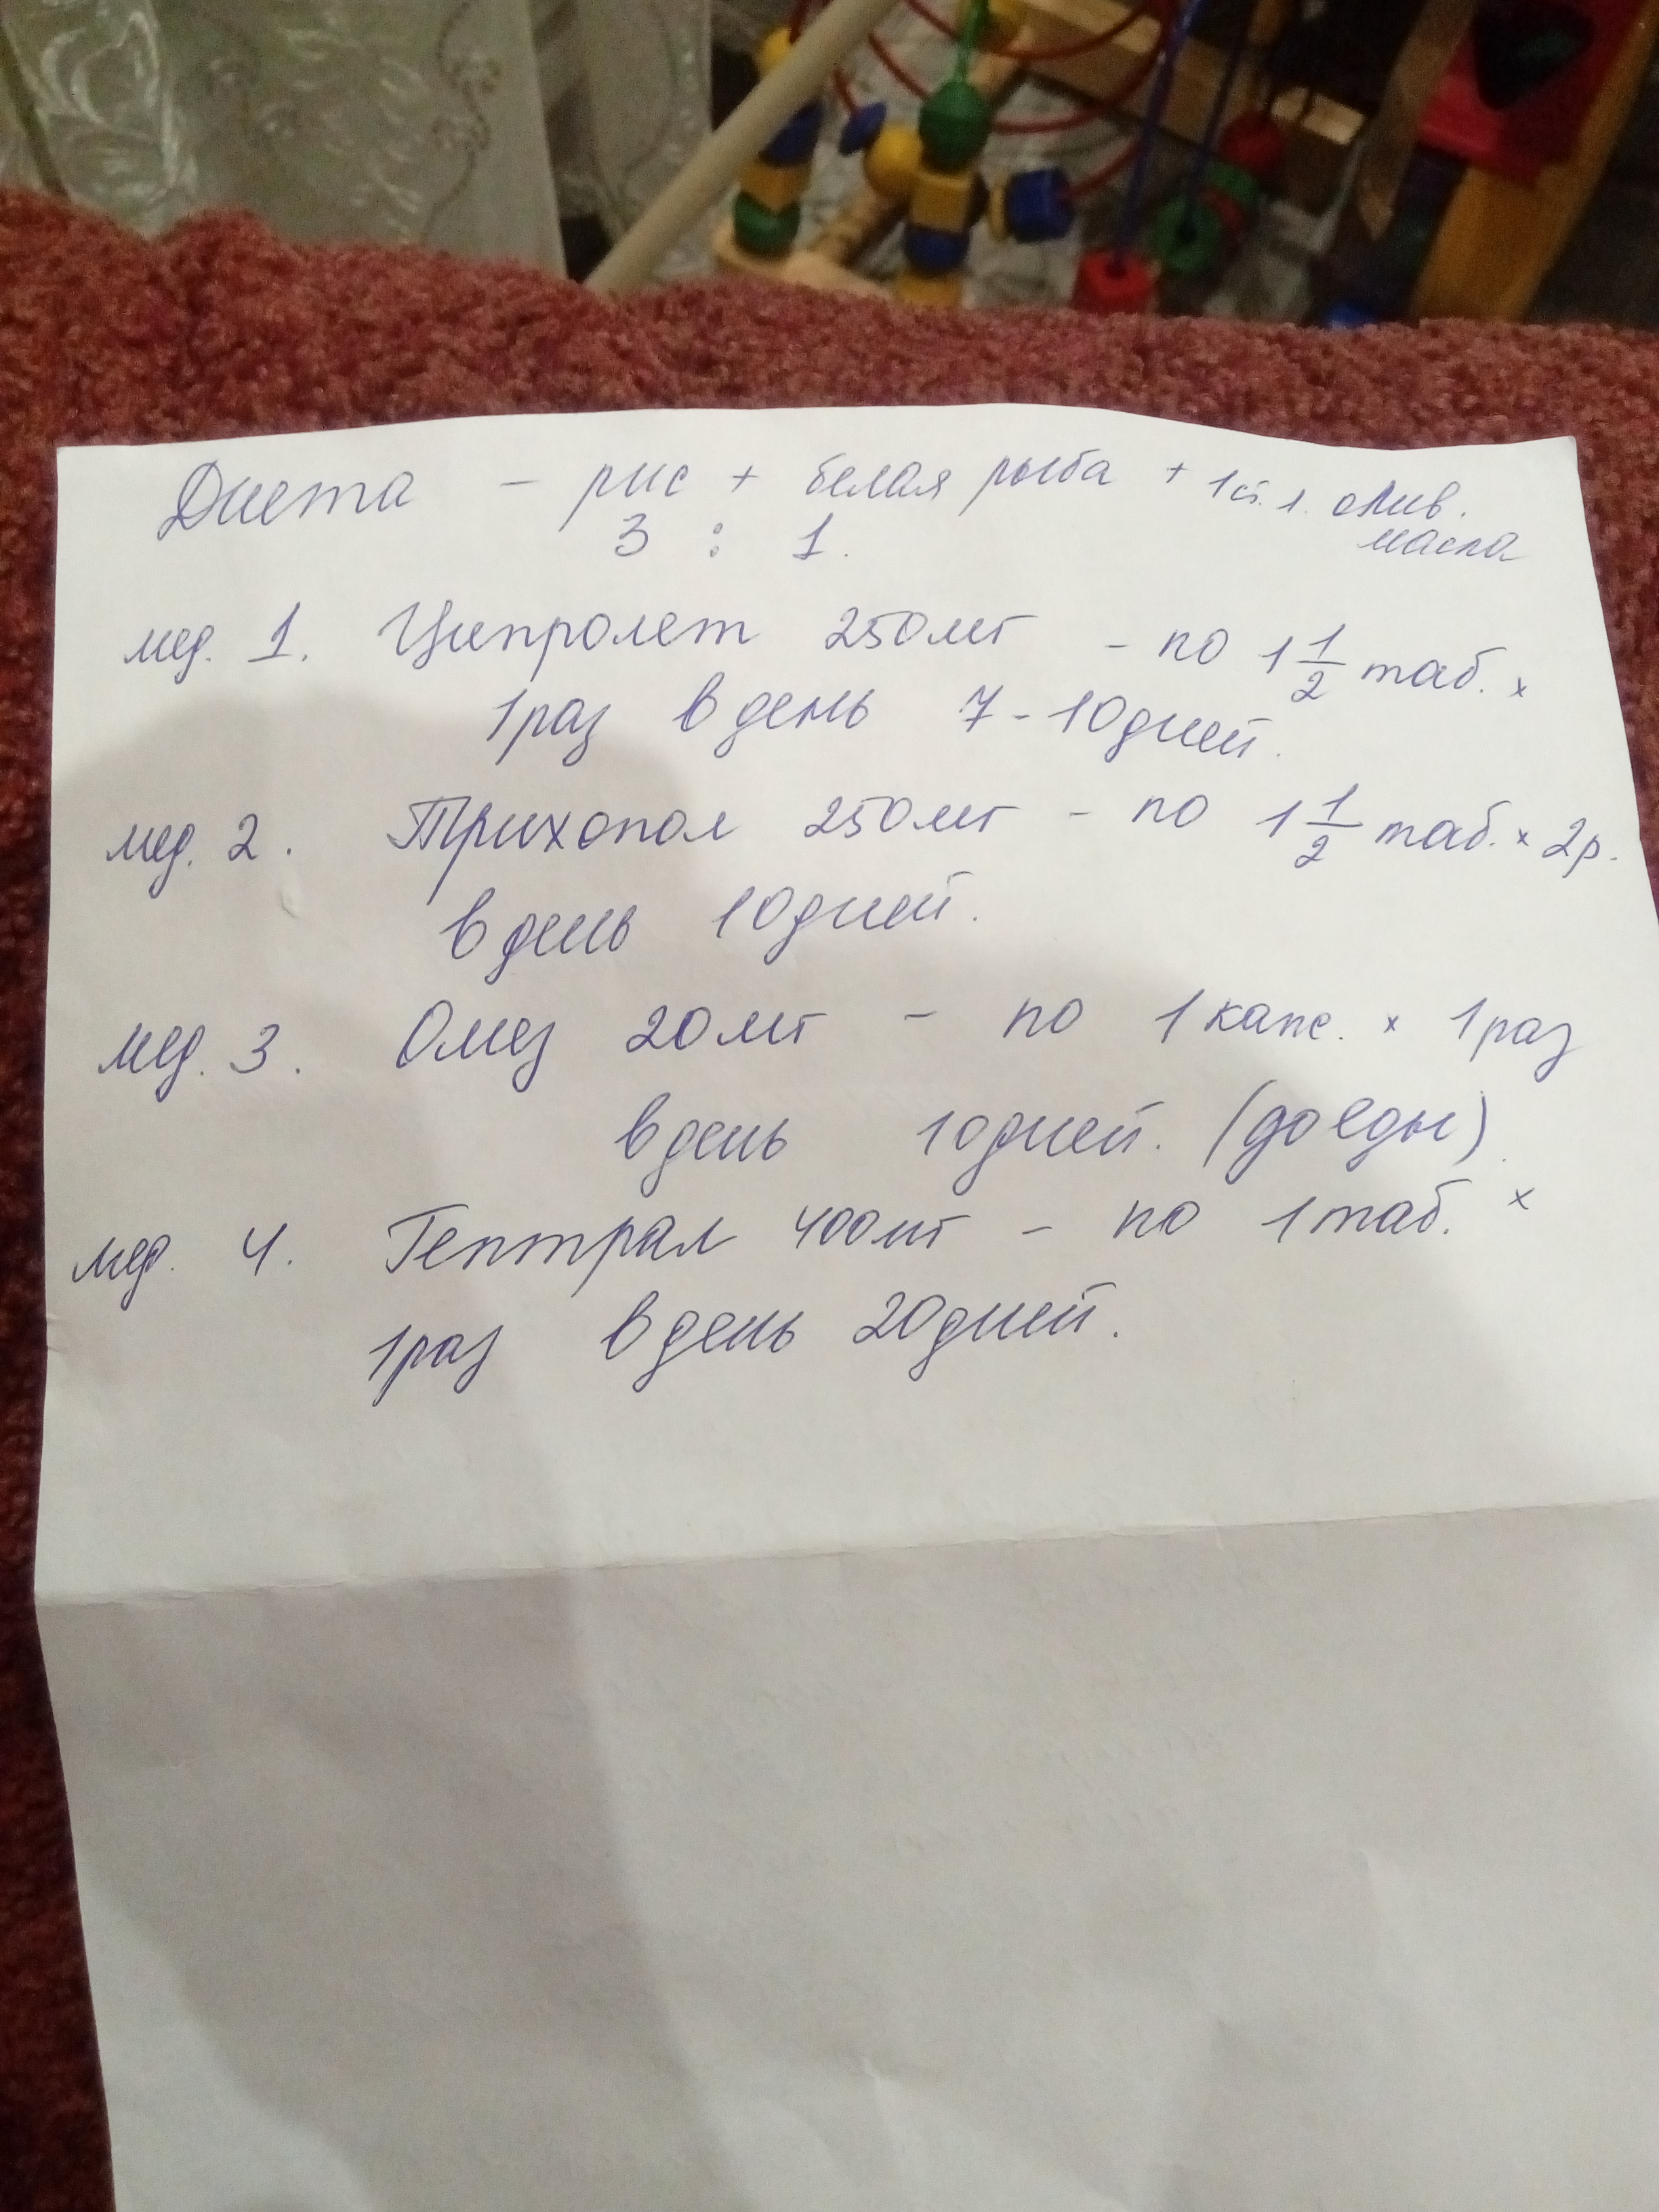 Диета - рис + белая рыба + 1 ст. л. олив.
3 : 1. масла
мед. 1. Ципролет 250 мг - по 1 1/2 таб. ×
1 раз в день 7-10 дней.
мед. 2. Трихопол 250 мг - по 1 1/2 таб. × 2 р.
в день 10 дней.
мед. 3. Омез 20 мг - по 1 капс. × 1 раз
в день 10 дней. (до еды)
мед. 4. Гептрал 400 мг - по 1 таб. ×
1 раз в день 20 дней.